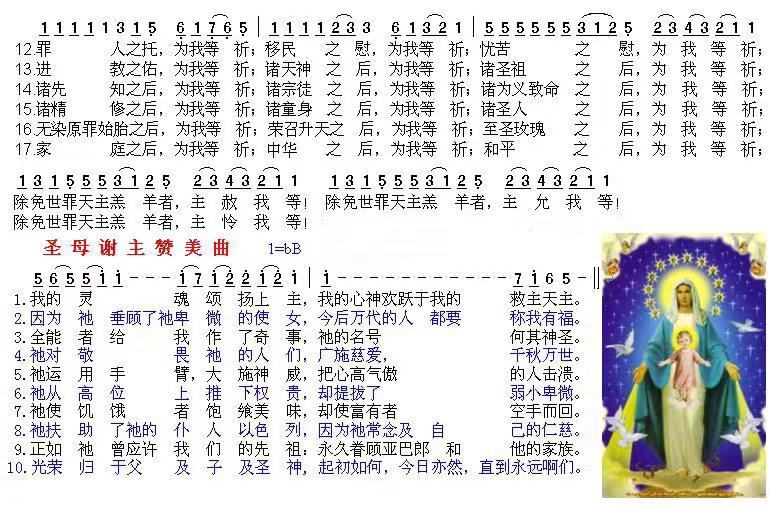 1 1 1 1 1 2 3 5 6 1 7 6 5 1 1 1 1 1 2 3 3 6 1 3 2 1 5 5 5 5 5 5 3 1 2 5 2 3 4 3 2 1 1
12.罪 人之托，为我等 祈；移民 之 慰，为我等 祈；忧苦 之 慰，为 我 等 祈；
13.进 教之佑，为我等 祈；诸天神 之 后，为我等 祈；诸圣祖 之 后，为 我 等 祈；
14诸先 知之后，为我等 祈；诸宗徒 之 后，为我等 祈；诸为义致命 之 后，为 我 等 祈；
15诸精 修之后，为我等 祈；诸童身 之 后，为我等 祈；诸圣人 之 后，为 我 等 祈；
16.无染原罪始胎之后，为我等 祈；荣召升天之 后，为我等 祈；至圣玫瑰 之 后，为 我 等 祈；
17.家 庭之后，为我等 祈；中华 之 后，为我等 祈；和平 之 后，为 我 等 祈；
1 3 1 5 5 3 1 2 5 2 3 4 3 2 1 1 1 3 1 5 5 3 1 2 5 2 3 4 3 2 1 1
除免世罪天主羔 羊者，主 赦 我 等！除免世罪天主羔 羊者，主 允 我 等！
除免世罪天主羔 羊者，主 怜 我 等！
圣母谢主赞美曲 1=bB
5 6 5 5 1 1 - - - 1 7 1 2 2 1 1 - - - - - - - - - - 7 1 6 5 -
1.我的 灵 魂 颂 扬上 主，我的心神欢跃于我的 救主天主。
2.因为 祂 垂顾了祂卑 微 的使 女，今后万代的人 都要 称我有福。
3.全能 者 给 我 作了奇 事，祂的名号 何其神圣。
4.祂对 敬 畏 祂 的人 们，广施慈爱， 千秋万世。
5.祂运 用 手 臂，大 施神 威，把心高气傲 的人击溃。
6.祂从 高 位 上 推 下权 贵，却提拔了 弱小卑微。
7.祂使 饥 饿 者 饱 飨美 味，却使富有者 空手而回。
8.祂扶 助 了祂的 仆 人 以色 列，因为祂常念及 自 己的仁慈。
9.正如 祂 曾应许 我 们 的先 祖：永久眷顾亚巴郎 和 他的家族。
10.光荣 归 于父 及 子 及圣 神，起初如何，今日亦然，直到永远啊们。